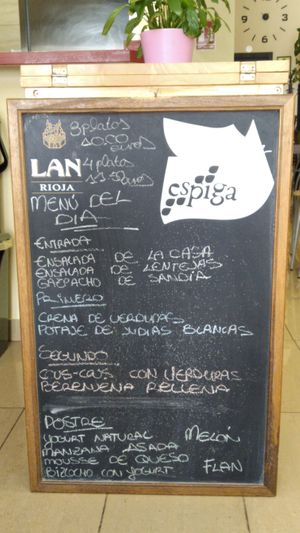 3 platos
10.00
euros
LAN
RIOJA
4 platos
euros
espiga
MENÚ DEL
DIA
ENTRADA
ENSALADA DE LA CASA
ENSALADA DE LENTEJAS
GAZPACHO DE SANDIA
PRIMERO
CREMA DE VERDURAS
POTAJE DE JUDIAS BLANCAS
SEGUNDO
CUS-CUS CON VERDURAS
BERENJENA RELLENA
POSTRE
YOGURT NATURAL MELÓN
MANZANA ASADA
MOUSSE DE QUESO FLAN
BIZCOCHO CON YOGURT